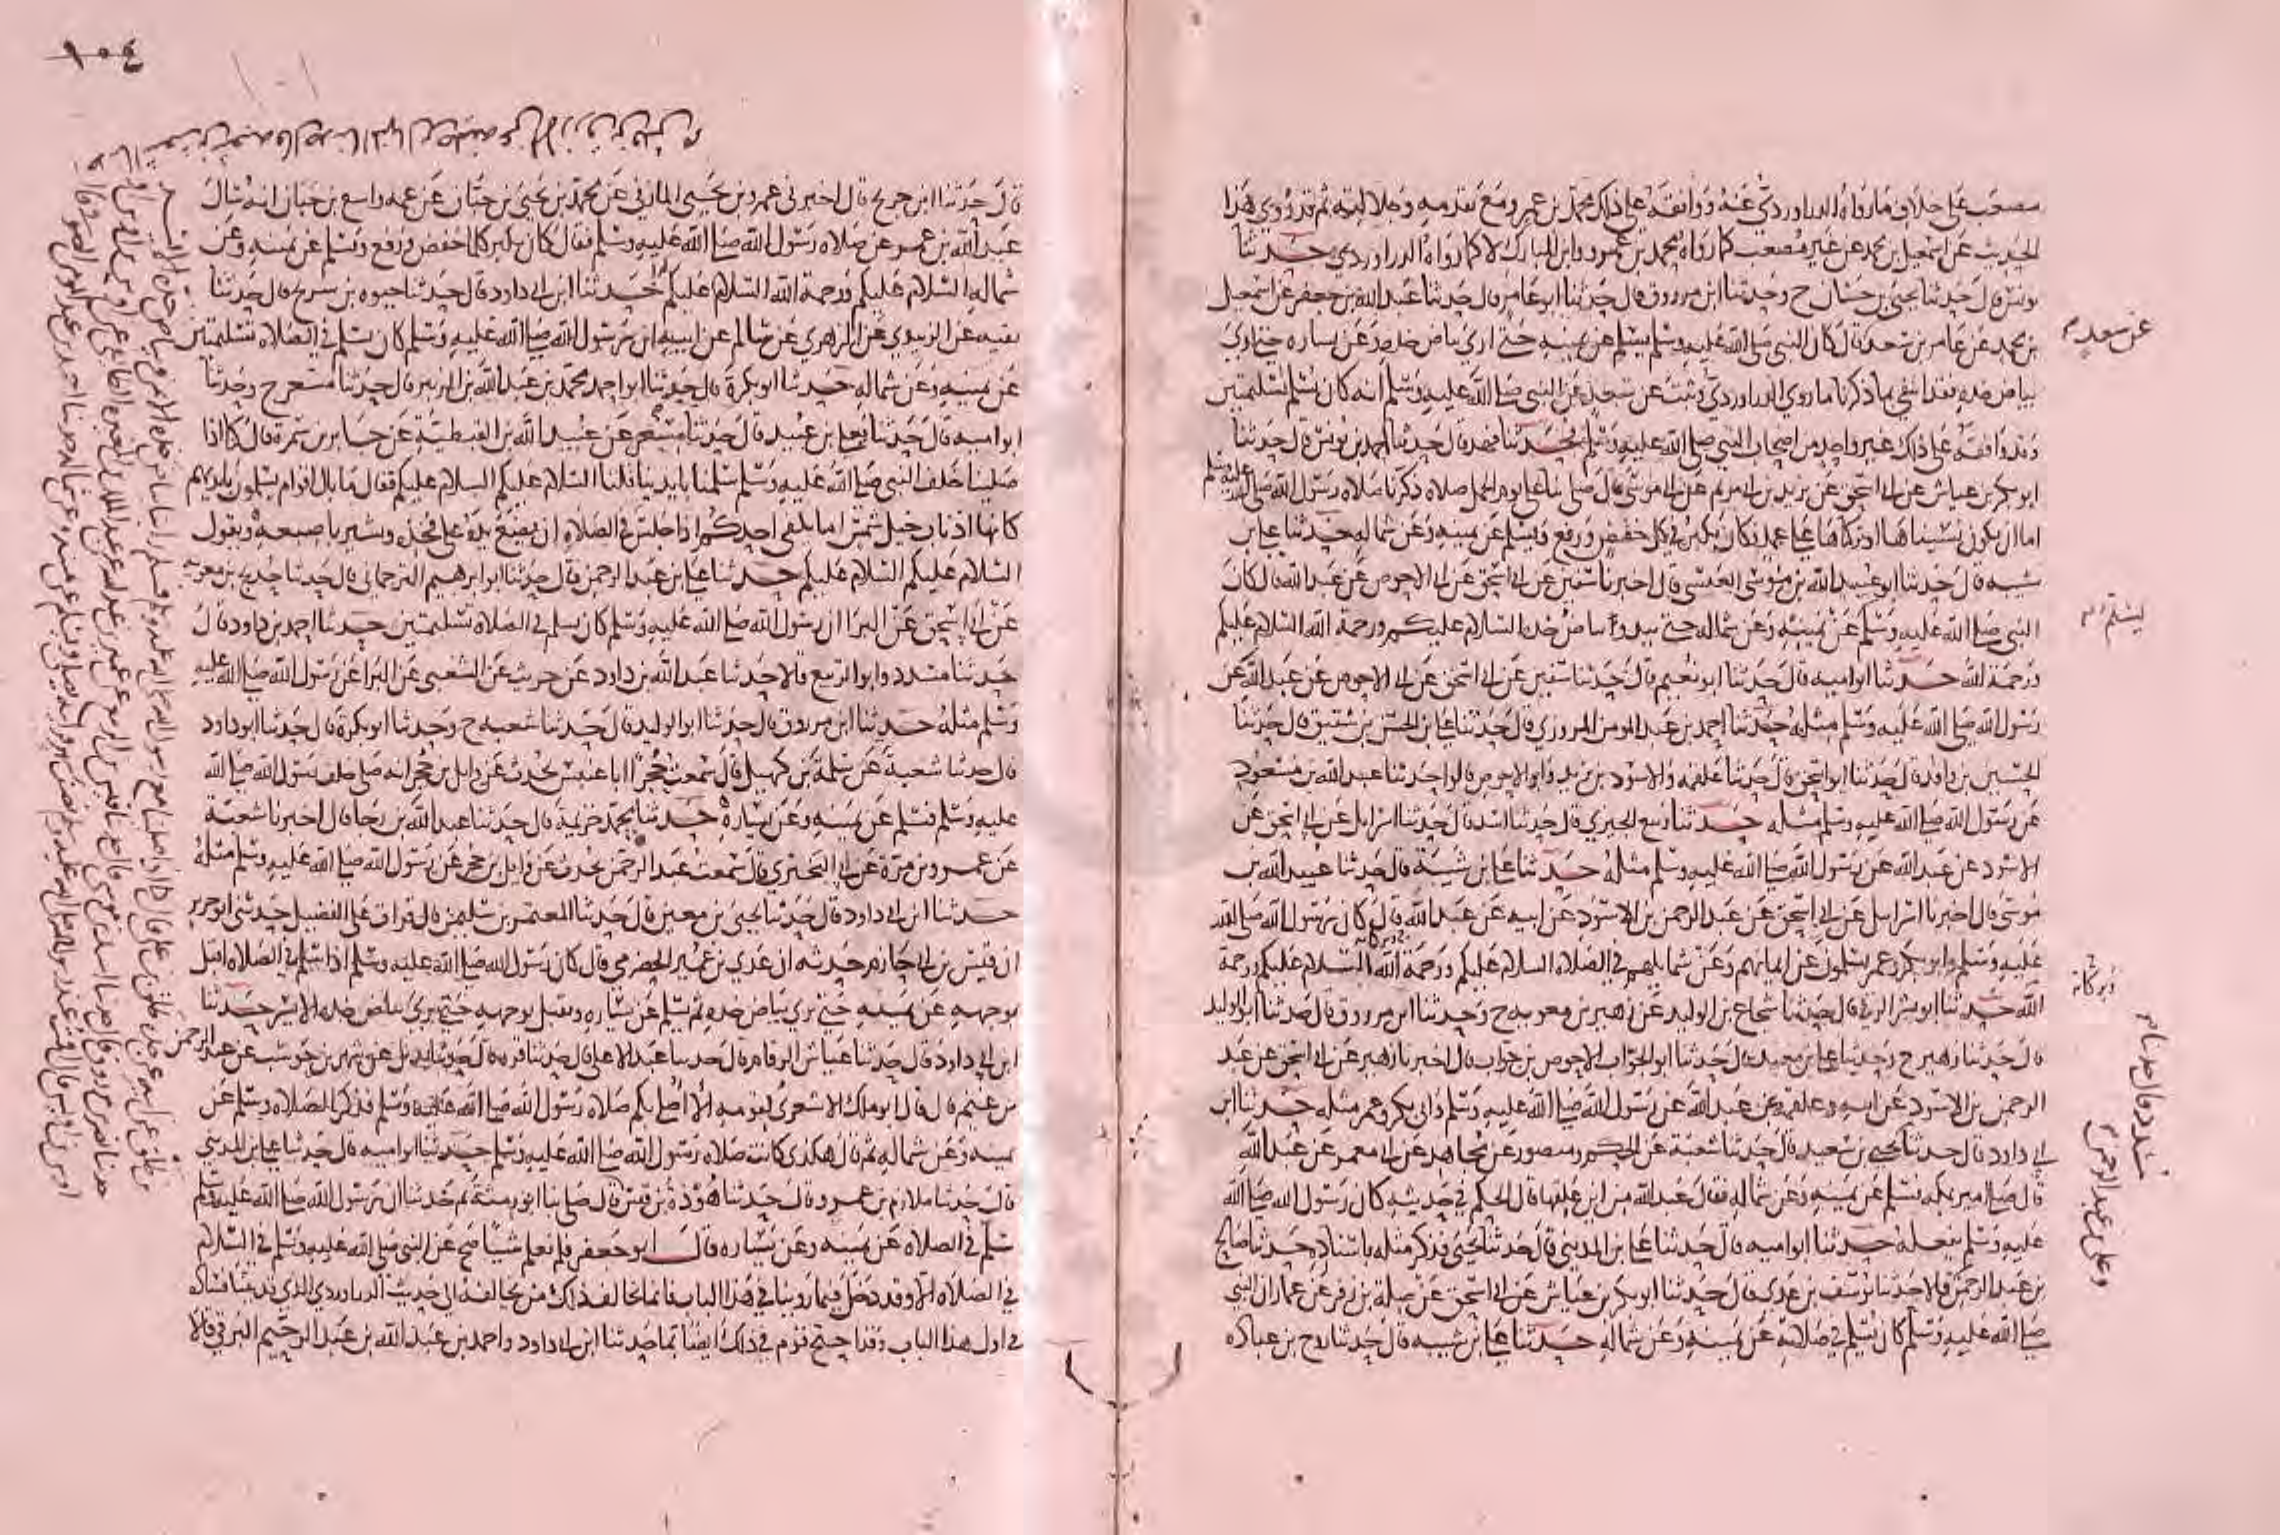 مصعب على خلاف ما رواه الدراوردي عنه ووافقه على ذلك محمد بن عمرو مع تقدمه وجلالته ثم قد روي هذا
الحديث عن اسمعيل بن محمد عن غير مصعب كما رواه محمد بن عمرو وابن المبارك لا كما رواه الدراوردي حدثنا
يونس قال حدثنا يحيى بن حسان ح وحدثنا ابن مرزوق قال حدثنا ابو عامر قال حدثنا عبد الله بن جعفر عن اسمعيل
بن محمد عن عامر بن سعد قال كان النبي صلى الله عليه وسلم يسلم عن يمينه حتى ارى بياض خده وعن يساره حتى ارى
عن سعد
بياض خده فقد انتفى بما ذكرنا ما روى الدراوردي وثبت عن سعد عن النبي صلى الله عليه وسلم انه كان يسلم تسليمتين
وقد وافقه على ذلك غير واحد من اصحاب النبي صلى الله عليه وسلم حدثنا فهد قال حدثنا احمد بن يونس قال حدثنا
ابو بكر بن عياش عن ابي اسحق عن بريد بن ابي مريم عن ابي موسى قال صلى بنا علي يوم الجمل صلاة ذكرنا صلاة رسول الله صلى الله عليه وسلم
اما ان يكون نسيناها او تركناها على عمد فكان يكبر في كل خفض ورفع ويسلم عن يمينه وعن شماله حدثنا علي بن
شيبه قال حدثنا ابو عبيد الله بن موسى العبسي قال اخبرنا سفين عن ابي اسحق عن ابي الاحوص عن عبد الله قال كان
النبي صلى الله عليه وسلم عن يمينه وعن شماله حتى يبدو بياض خده السلام عليكم ورحمة الله السلام عليكم
يسلم
ورحمة الله حدثنا ابو اميه قال حدثنا ابو نعيم قال حدثنا سفين عن ابي اسحق عن ابي الاحوص عن عبد الله عن
رسول الله صلى الله عليه وسلم مثله حدثنا احمد بن عبد المومن المروزي قال حدثنا علي بن الحسن بن شقيق قال حدثنا
الحسين بن واقد قال حدثنا ابو اسحق قال حدثنا علقمه والاسود بن يزيد وابو الاحوص قالوا حدثنا عبد الله بن مسعود
عن رسول الله صلى الله عليه وسلم مثله حدثنا ربيع الجيزي قال حدثنا اسد قال حدثنا اسرايل عن ابي اسحق عن
الاسود عن عبد الله عن رسول الله صلى الله عليه وسلم مثله حدثنا علي بن شيبة قال حدثنا عبيد الله بن
موسى قال اخبرنا اسرايل عن ابي اسحق عن عبد الرحمن بن الاسود عن ابيه عن عبد الله قال كان رسول الله صلى الله
عليه وسلم وابو بكر وعمر يسلمون عن ايمانهم وعن شمايلهم في الصلاة السلام عليكم ورحمة الله السلام عليكم ورحمة
وبركاته
الله حدثنا ابو بشر الرقي قال حدثنا شجاع بن الوليد عن زهير بن معوية ح وحدثنا ابن مرزوق قال حدثنا ابو الوليد
قال حدثنا زهير ح وحدثنا علي بن معبد قال حدثنا ابو الجواب الاحوص بن جواب قال اخبرنا زهير عن ابي اسحق عن عبد
الرحمن بن الاسود عن ابيه وعلقمه عن عبد الله عن رسول الله صلى الله عليه وسلم وابي بكر وعمر مثله حدثنا ابن
ابي داود قال حدثنا يحيى بن سعيد قال حدثنا شعبة عن الحكم ومنصور عن مجاهد عن ابي معمر عن عبد الله
مسدد قال حدثنا
قال صلى امير بمكه يسلم عن يمينه وعن شماله فقال عبد الله من اين علقها قال الحكم في حديثه كان رسول الله صلى الله
عليه وسلم يفعله حدثنا ابو اميه قال حدثنا علي بن المديني قال حدثنا يحيى فذكر مثله باسناده حدثنا صالح
وعلي بن عبد الرحمن
بن عبد الرحمن قالا حدثنا يوسف بن عدي قال حدثنا ابو بكر بن عياش عن ابي اسحق عن صلة بن زفر عن عمار ان النبي
صلى الله عليه وسلم كان يسلم في صلاته عن يمينه وعن شماله حدثنا علي بن شيبه قال حدثنا روح بن عباده
قال حدثنا ابن جريج قال اخبرني عمرو بن يحيى المازني عن محمد بن يحيى بن حبان عن عمه واسع بن حبان انه سال
عبد الله بن عمر عن صلاة رسول الله صلى الله عليه وسلم فقال كان يكبر كلما خفض ورفع ويسلم عن يمينه وعن
شماله السلام عليكم ورحمة الله السلام عليكم حدثنا ابن ابي داود قال حدثنا حيوه بن شريح قال حدثنا
بقيه عن الزبيدي عن الزهري عن سالم عن ابيه ان رسول الله صلى الله عليه وسلم كان يسلم في الصلاة تسليمتين
عن يمينه وعن شماله حدثنا ابو بكرة قال حدثنا ابو احمد محمد بن عبد الله بن الزبير قال حدثنا مسعر ح وحدثنا
ابو اميه قال حدثنا يعلى بن عبيد قال حدثنا مسعر عن عبيد الله بن القبطية عن جابر بن سمرة قال كنا اذا
صلينا خلف النبي صلى الله عليه وسلم سلمنا بايدينا قلنا السلام عليكم السلام عليكم فقال ما بال اقوام يسلمون بايديهم
كانها اذناب خيل شمس اما يكفي احدكم اذا جلس في الصلاة ان يضع يده على فخذه ويشير باصبعه ويقول
السلام عليكم السلام عليكم حدثنا علي بن عبد الرحمن قال حدثنا ابو ابرهيم الترجماني قال حدثنا حديج بن معويه
عن ابي اسحق عن البرا ان رسول الله صلى الله عليه وسلم كان يسلم في الصلاة تسليمتين حدثنا احمد بن داود قال
حدثنا مسدد وابو الربيع قالا حدثنا عبد الله بن داود عن حريث عن الشعبي عن البرا عن رسول الله صلى الله عليه
وسلم مثله حدثنا ابن مرزوق قال حدثنا ابو الوليد قال حدثنا شعبه ح وحدثنا ابو بكرة قال حدثنا ابو داود
قال حدثنا شعبة عن سلمة بن كهيل قال سمعت حجرا ابا عنبس يحدث عن وايل بن حجر انه صلى خلف رسول الله صلى الله
عليه وسلم فسلم عن يمينه وعن يساره حدثنا محمد خزيمة قال حدثنا عبد الله بن رجا قال اخبرنا شعبة
عن عمرو بن مرة عن ابي البختري قال سمعت عبد الرحمن يحدث عن وايل بن حجر عن رسول الله صلى الله عليه وسلم مثله
حدثنا ابن ابي داود قال حدثنا يحيى بن معين قال حدثنا المعتمر بن سليمن قال قرات على الفضيل حدثني ابو حريز
ان قيس بن ابي حازم حدثه ان عدي بن عميرة الحضرمي قال كان رسول الله صلى الله عليه وسلم اذا سلم في الصلاة اقبل
بوجهه عن يمينه حتى يرى بياض خده ثم يسلم عن يساره ويقبل بوجهه حتى يرى بياض خده الايسر حدثنا
ابن ابي داود قال حدثنا عياش الرقام قال حدثنا عبد الاعلى قال حدثنا قره قال حدثنا بديل عن شهر بن حوشب عن عبد الرحمن
بن غنم قال قال ابو ملك الاشعري لقومه الا اصلي بكم صلاة رسول الله صلى الله عليه وسلم فذكر الصلاة وسلم عن
يمينه وعن شماله ثم قال هكذى كانت صلاة رسول الله صلى الله عليه وسلم حدثنا ابو اميه قال حدثنا علي بن المديني
قال حدثنا ملازم بن عمرو قال حدثنا هوذة بن قيس قال صلى بنا ابو رمثة ثم حدثنا ان رسول الله صلى الله عليه وسلم
سلم في الصلاة عن يمينه وعن يساره قال ابو جعفر فلم نعلم شيا صح عن النبي صلى الله عليه وسلم في السلام
في الصلاة الا وقد دخل فيما روينا في هذا الباب فانما خالف ذلك من يخالفه الى حديث الدراوردي الذي قد بينا فساده
في اول هذا الباب وقد احتج قوم في ذلك ايضا بما حدثنا ابن ابي داود واحمد بن عبد الله بن عبد الرحيم البرقي قالا